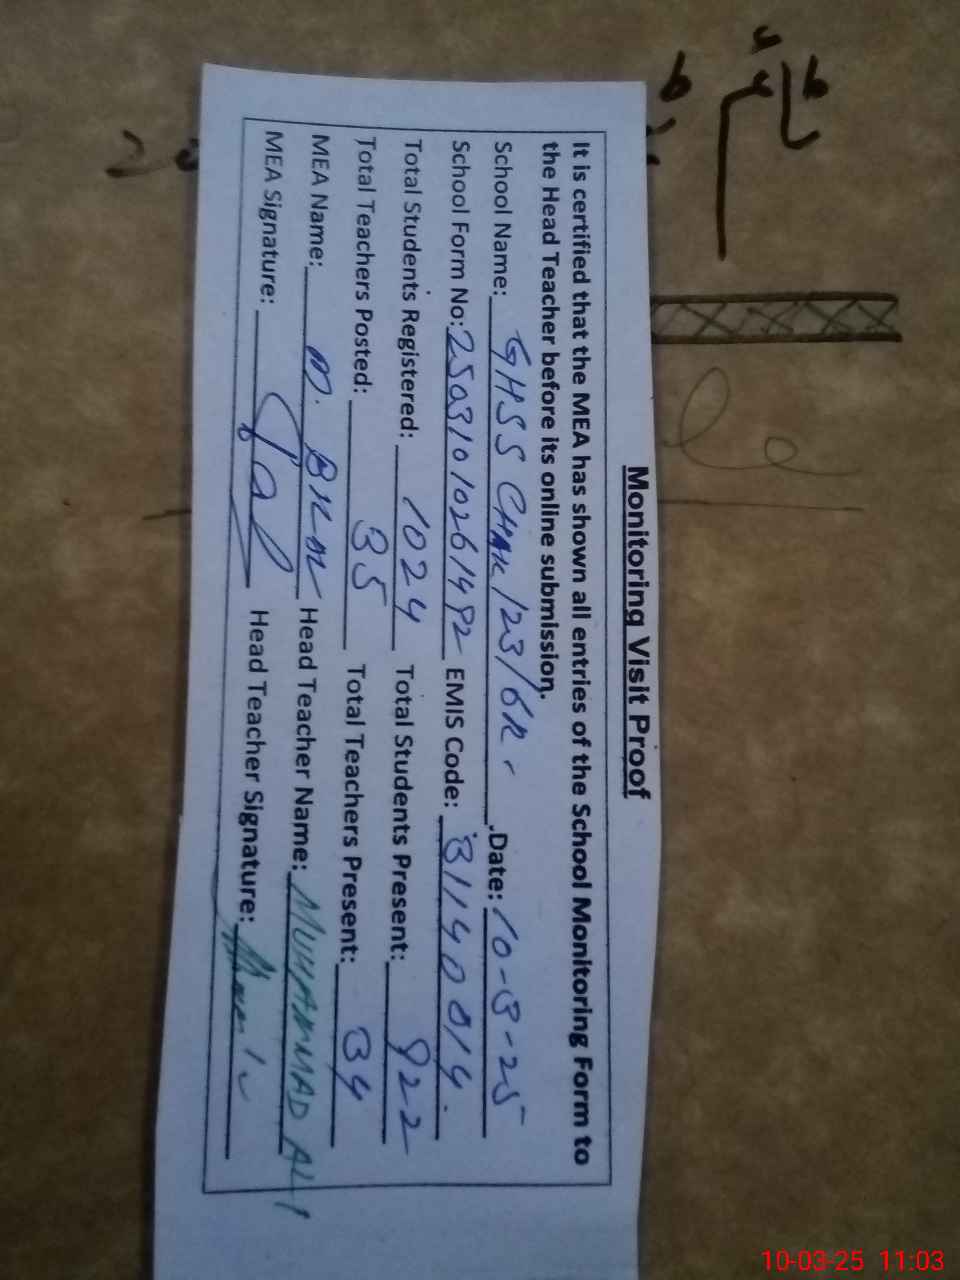 Monitoring Visit Proof
It is certified that the MEA has shown all entries of the School Monitoring Form to
the Head Teacher before its online submission.
School Name: GHSS Chak 123/6R .Date: 10-3-25
School Form No: 25031010261492 EMIS Code: 31140014
Total Students Registered: 1024 Total Students Present: 922
Total Teachers Posted: 35 Total Teachers Present: 34
MEA Name: M. Head Teacher Name: MUHAMMAD ALI
MEA Signature: Head Teacher Signature:
10-03-25 11:03